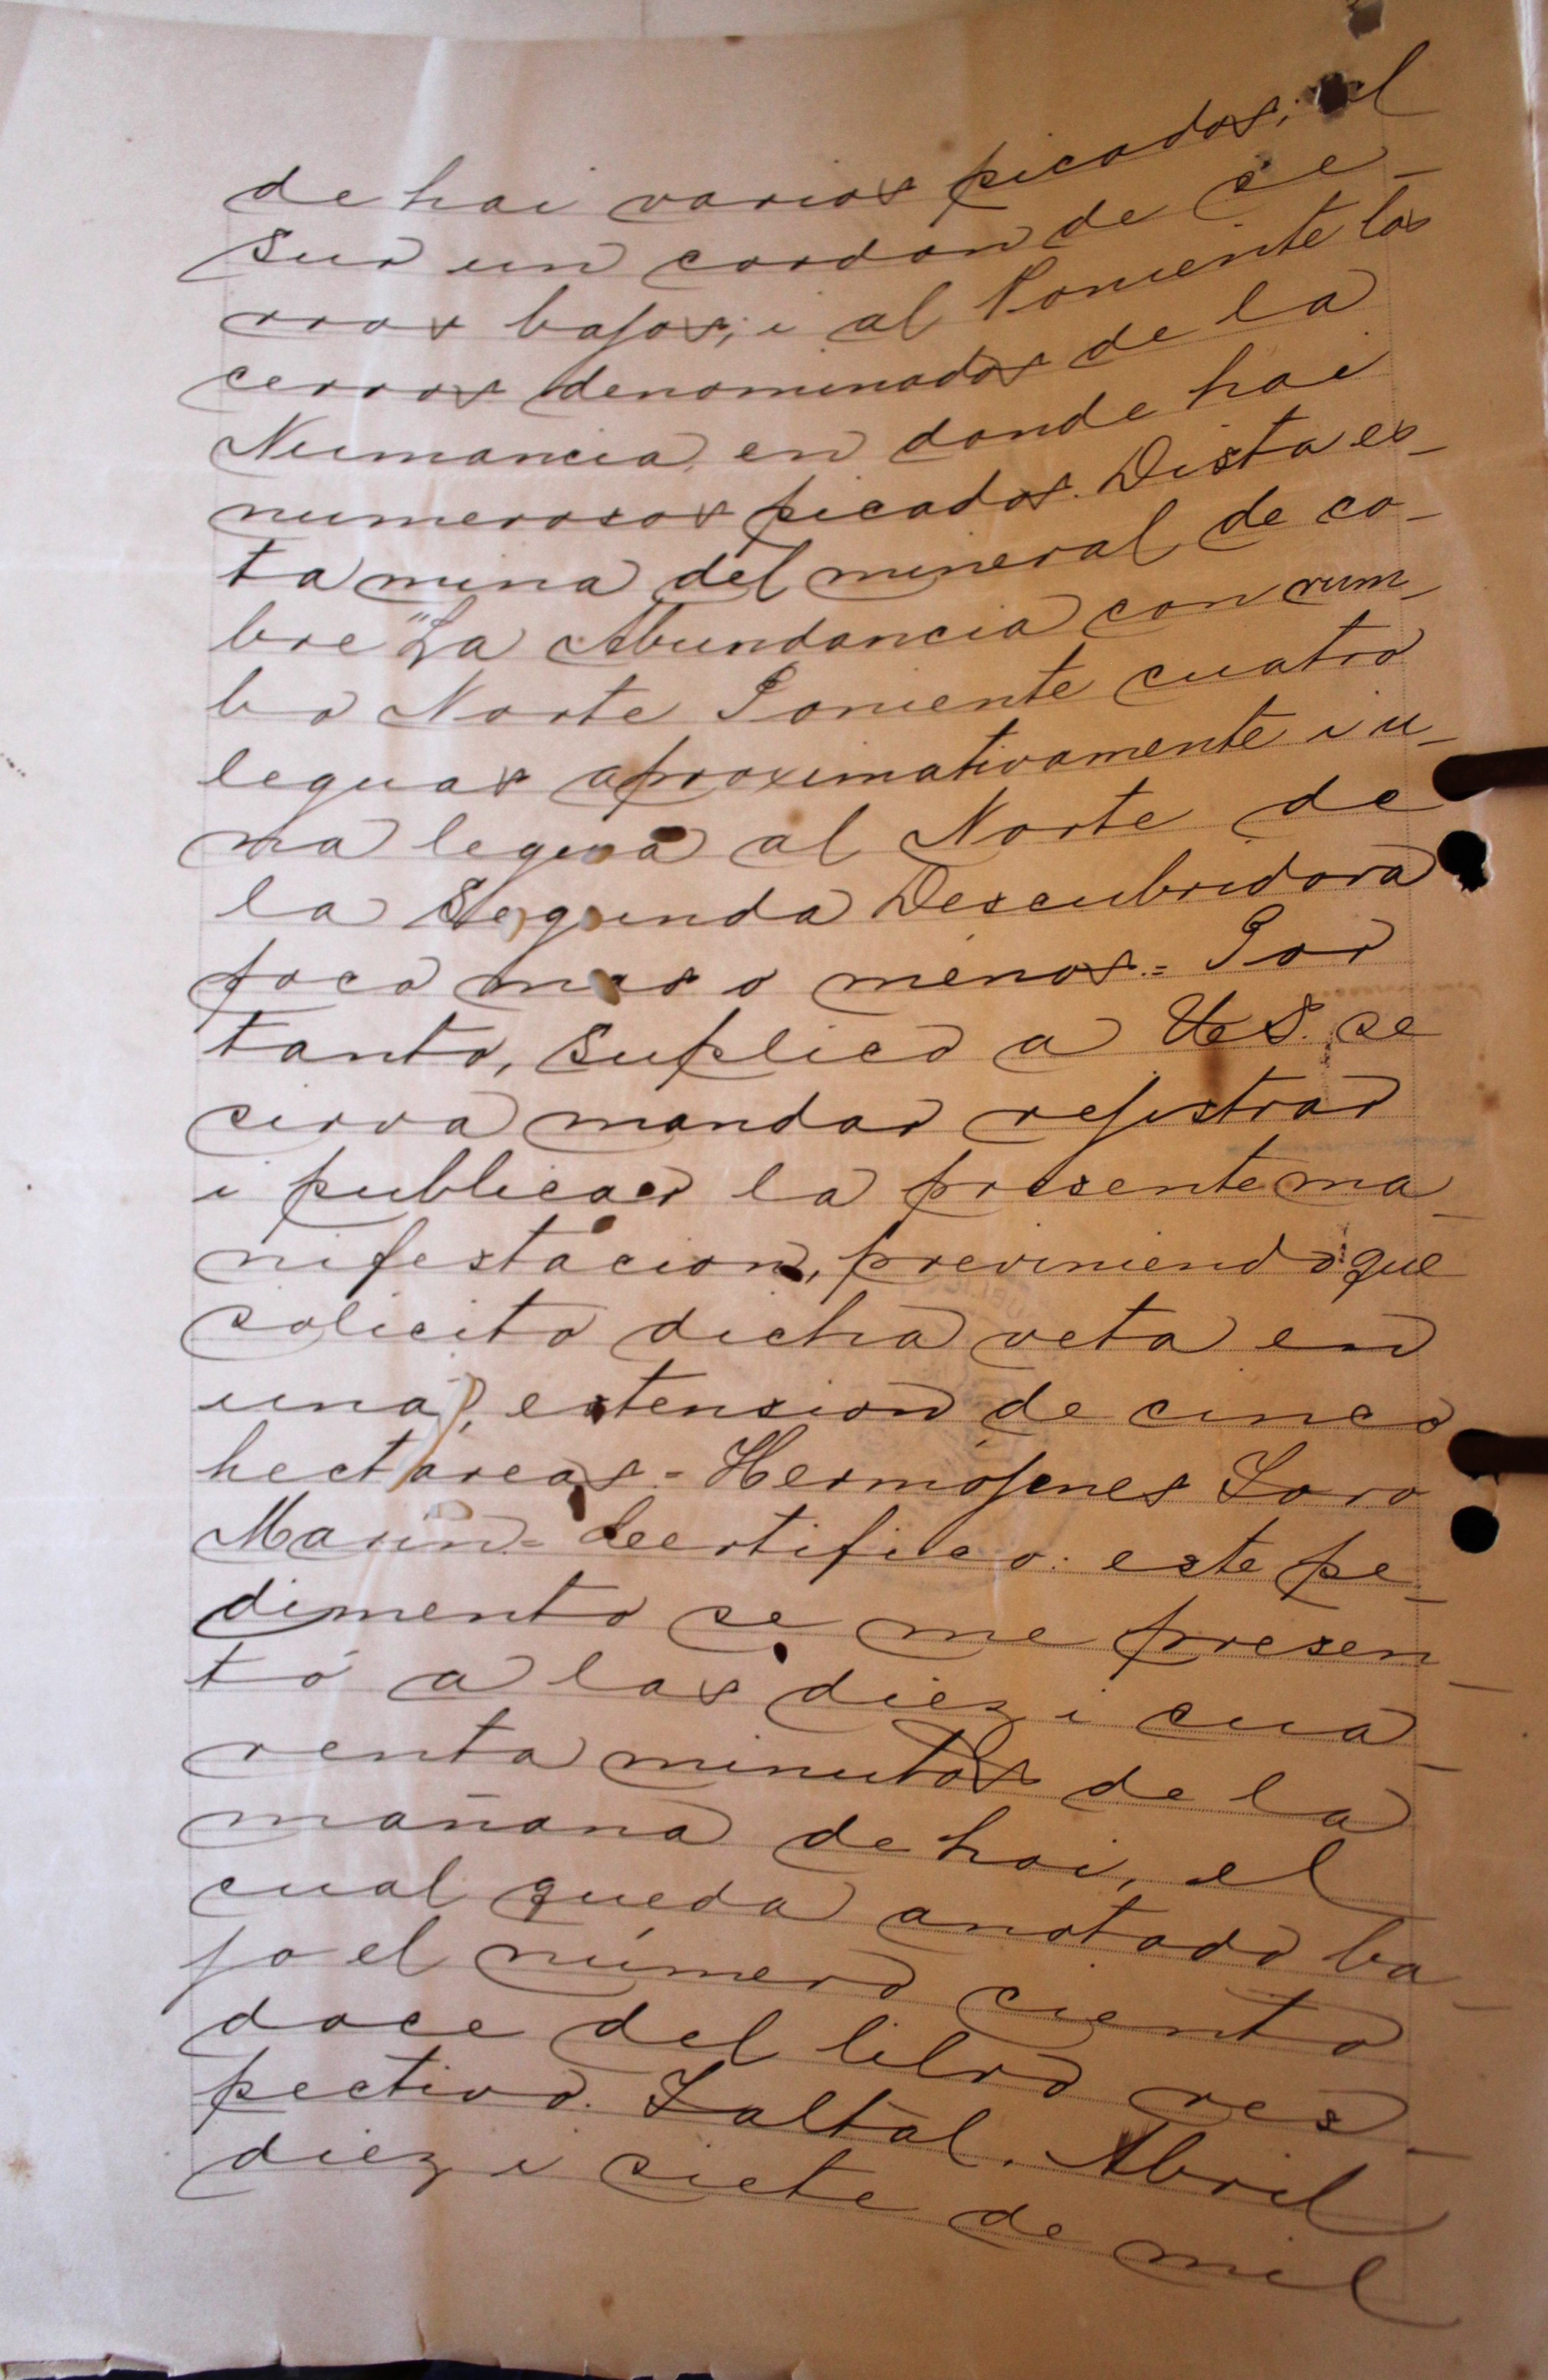 de hai varios picados; al
sur un cordon de ce-
rros bajos; i al Poniente los
cerros denominados de la
Numancia, en donde hai
numerosos picados. Dista es-
ta mina del mineral de co-
bre "La Abundancia con rum-
bo Norte Poniente cuatro
leguas aproximativamente i u-
na legua al Norte de
la Segunda Descubridora
poco mas o ménos.= Por
tanto, suplico a US. se
cirva mandar rejistrar
i publicar la presente ma-
nifestacion, previniendo que
solicito dicha veta en
una, estension de cinco
hectáreas.= Hermójenes Toro
Marin.= Certifico: este pe-
dimento se me presen-
tó a las diez i cua-
renta minutos de la
mañana de hoi, el
cual queda anotado ba-
jo el número ciento
doce del libro res-
pectivo. Taltal. Abril
diez i siete de mil